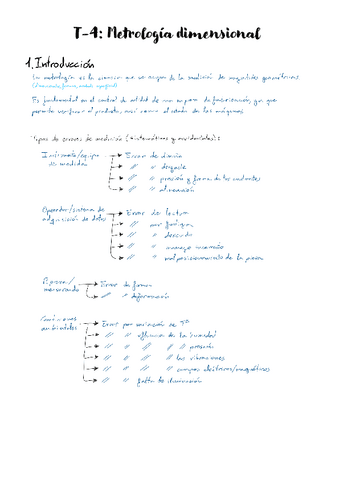 T-4: Metrología dimensional
1. Introducción
La metrología es la ciencia que se ocupa de la medición de magnitudes geométricas
(dimensión, forma, acabado superficial)
Es fundamental en el control de calidad de una empresa de fabricación, ya que
permite verificar el producto, así como el estado de las máquinas.
Tipos de errores de medición (sistemáticos y accidentales):
Instrumento/equipo de medida
→ Error de diseño
→ // " desgaste
→ // " presión y forma de los contactos
→ // " alineación
Operador/sistema de adquisición de datos
→ Error de lectura
→ // por fatiga
→ // " descuido
→ // " manejo
→ // " mal posicionamiento de la pieza
→ Error de forma
→ // " deformación
Condiciones ambientales
→ Error por variación de Tª
→ // " influencia de la humedad
→ // // // // presión
→ // // // // las vibraciones
→ // // // " campos eléctricos/magnéticos
→ // " falta de iluminación